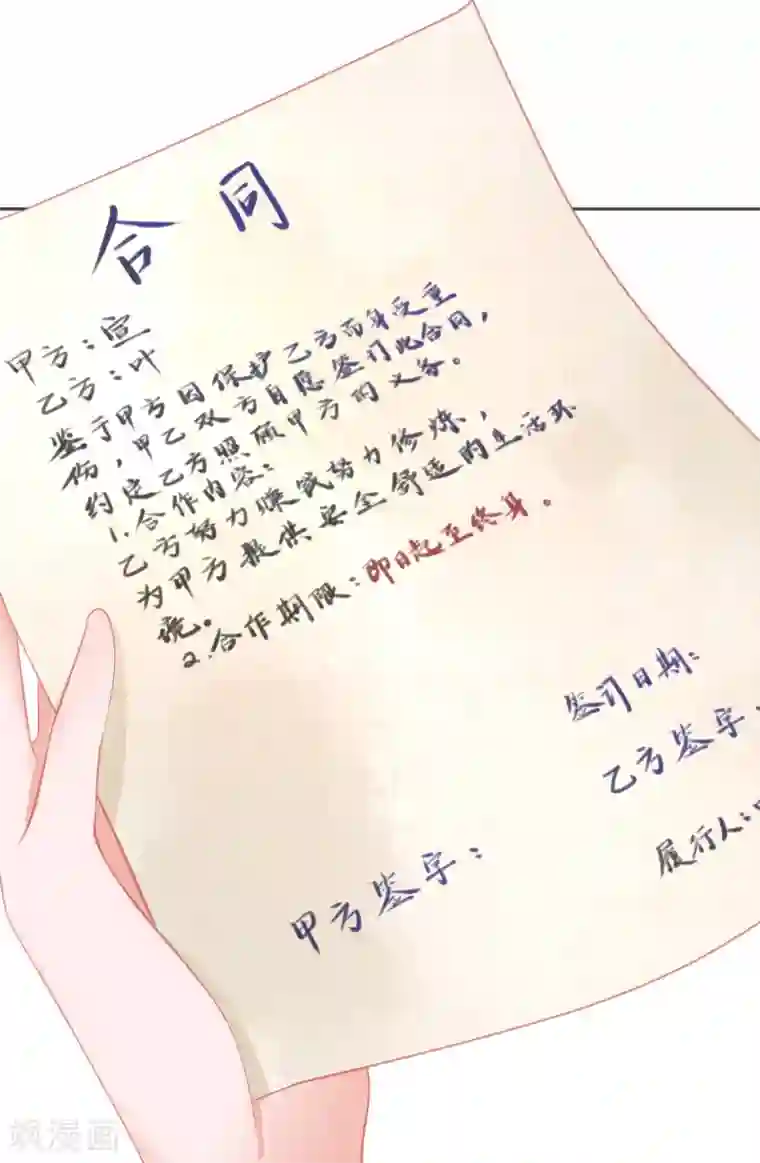 合同
甲方：宣
乙方：叶
鉴于甲方因保护乙方而身受重
伤，甲乙双方自愿签订此合同，
约定乙方照顾甲方的义务。
1.合作内容：
乙方努力赚钱努力修炼，
为甲方提供安全舒适的生活环
境。
2.合作期限：即日起至终身。
签订日期：
乙方签字：
履行人：
甲方签字：
飒漫画